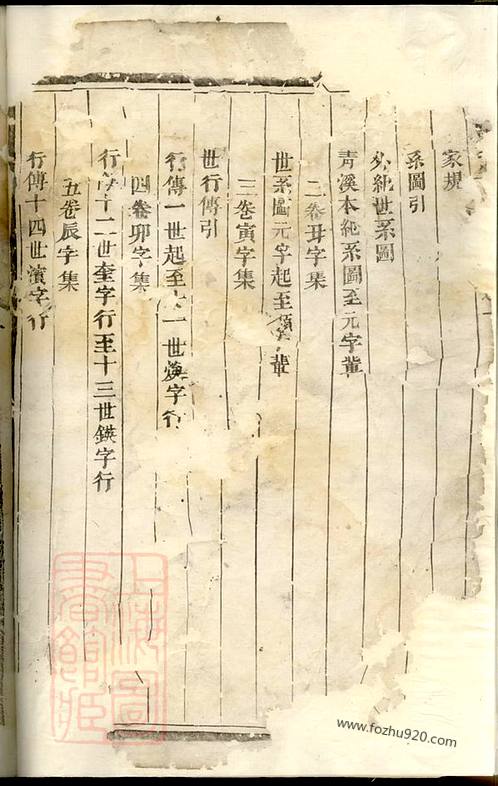 家規
系圖引
外紀世系圖
青溪本紀系圖至元字軰
二卷丑字集
世系圖元字起至軰
三卷寅字集
世行傳引
行傳一世起至十一世煐字行
四卷卯字集
行傳十二世奎字行至十三世鍈字行
五卷辰字集
行傳十四世濱字行
www.fozhu920.com